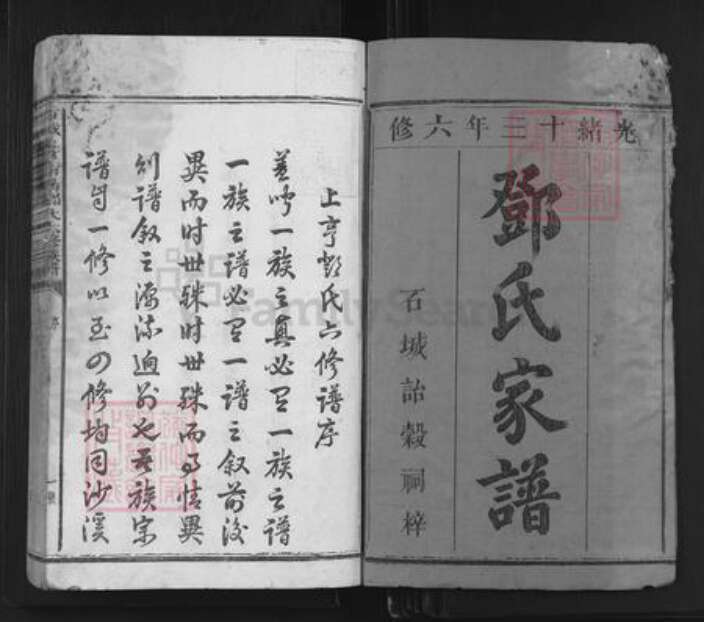 光緒十三年六修
鄧氏家譜
石城詒穀祠梓
上亨鄧氏六修譜序
蓋聞一族之真必有一族之譜
一族之譜必有一譜之叙前後
異而时世殊时世殊而事情異
則譜叙之源流迥別也吾族宗
譜自一修以至四修均同沙溪
FamilySearch